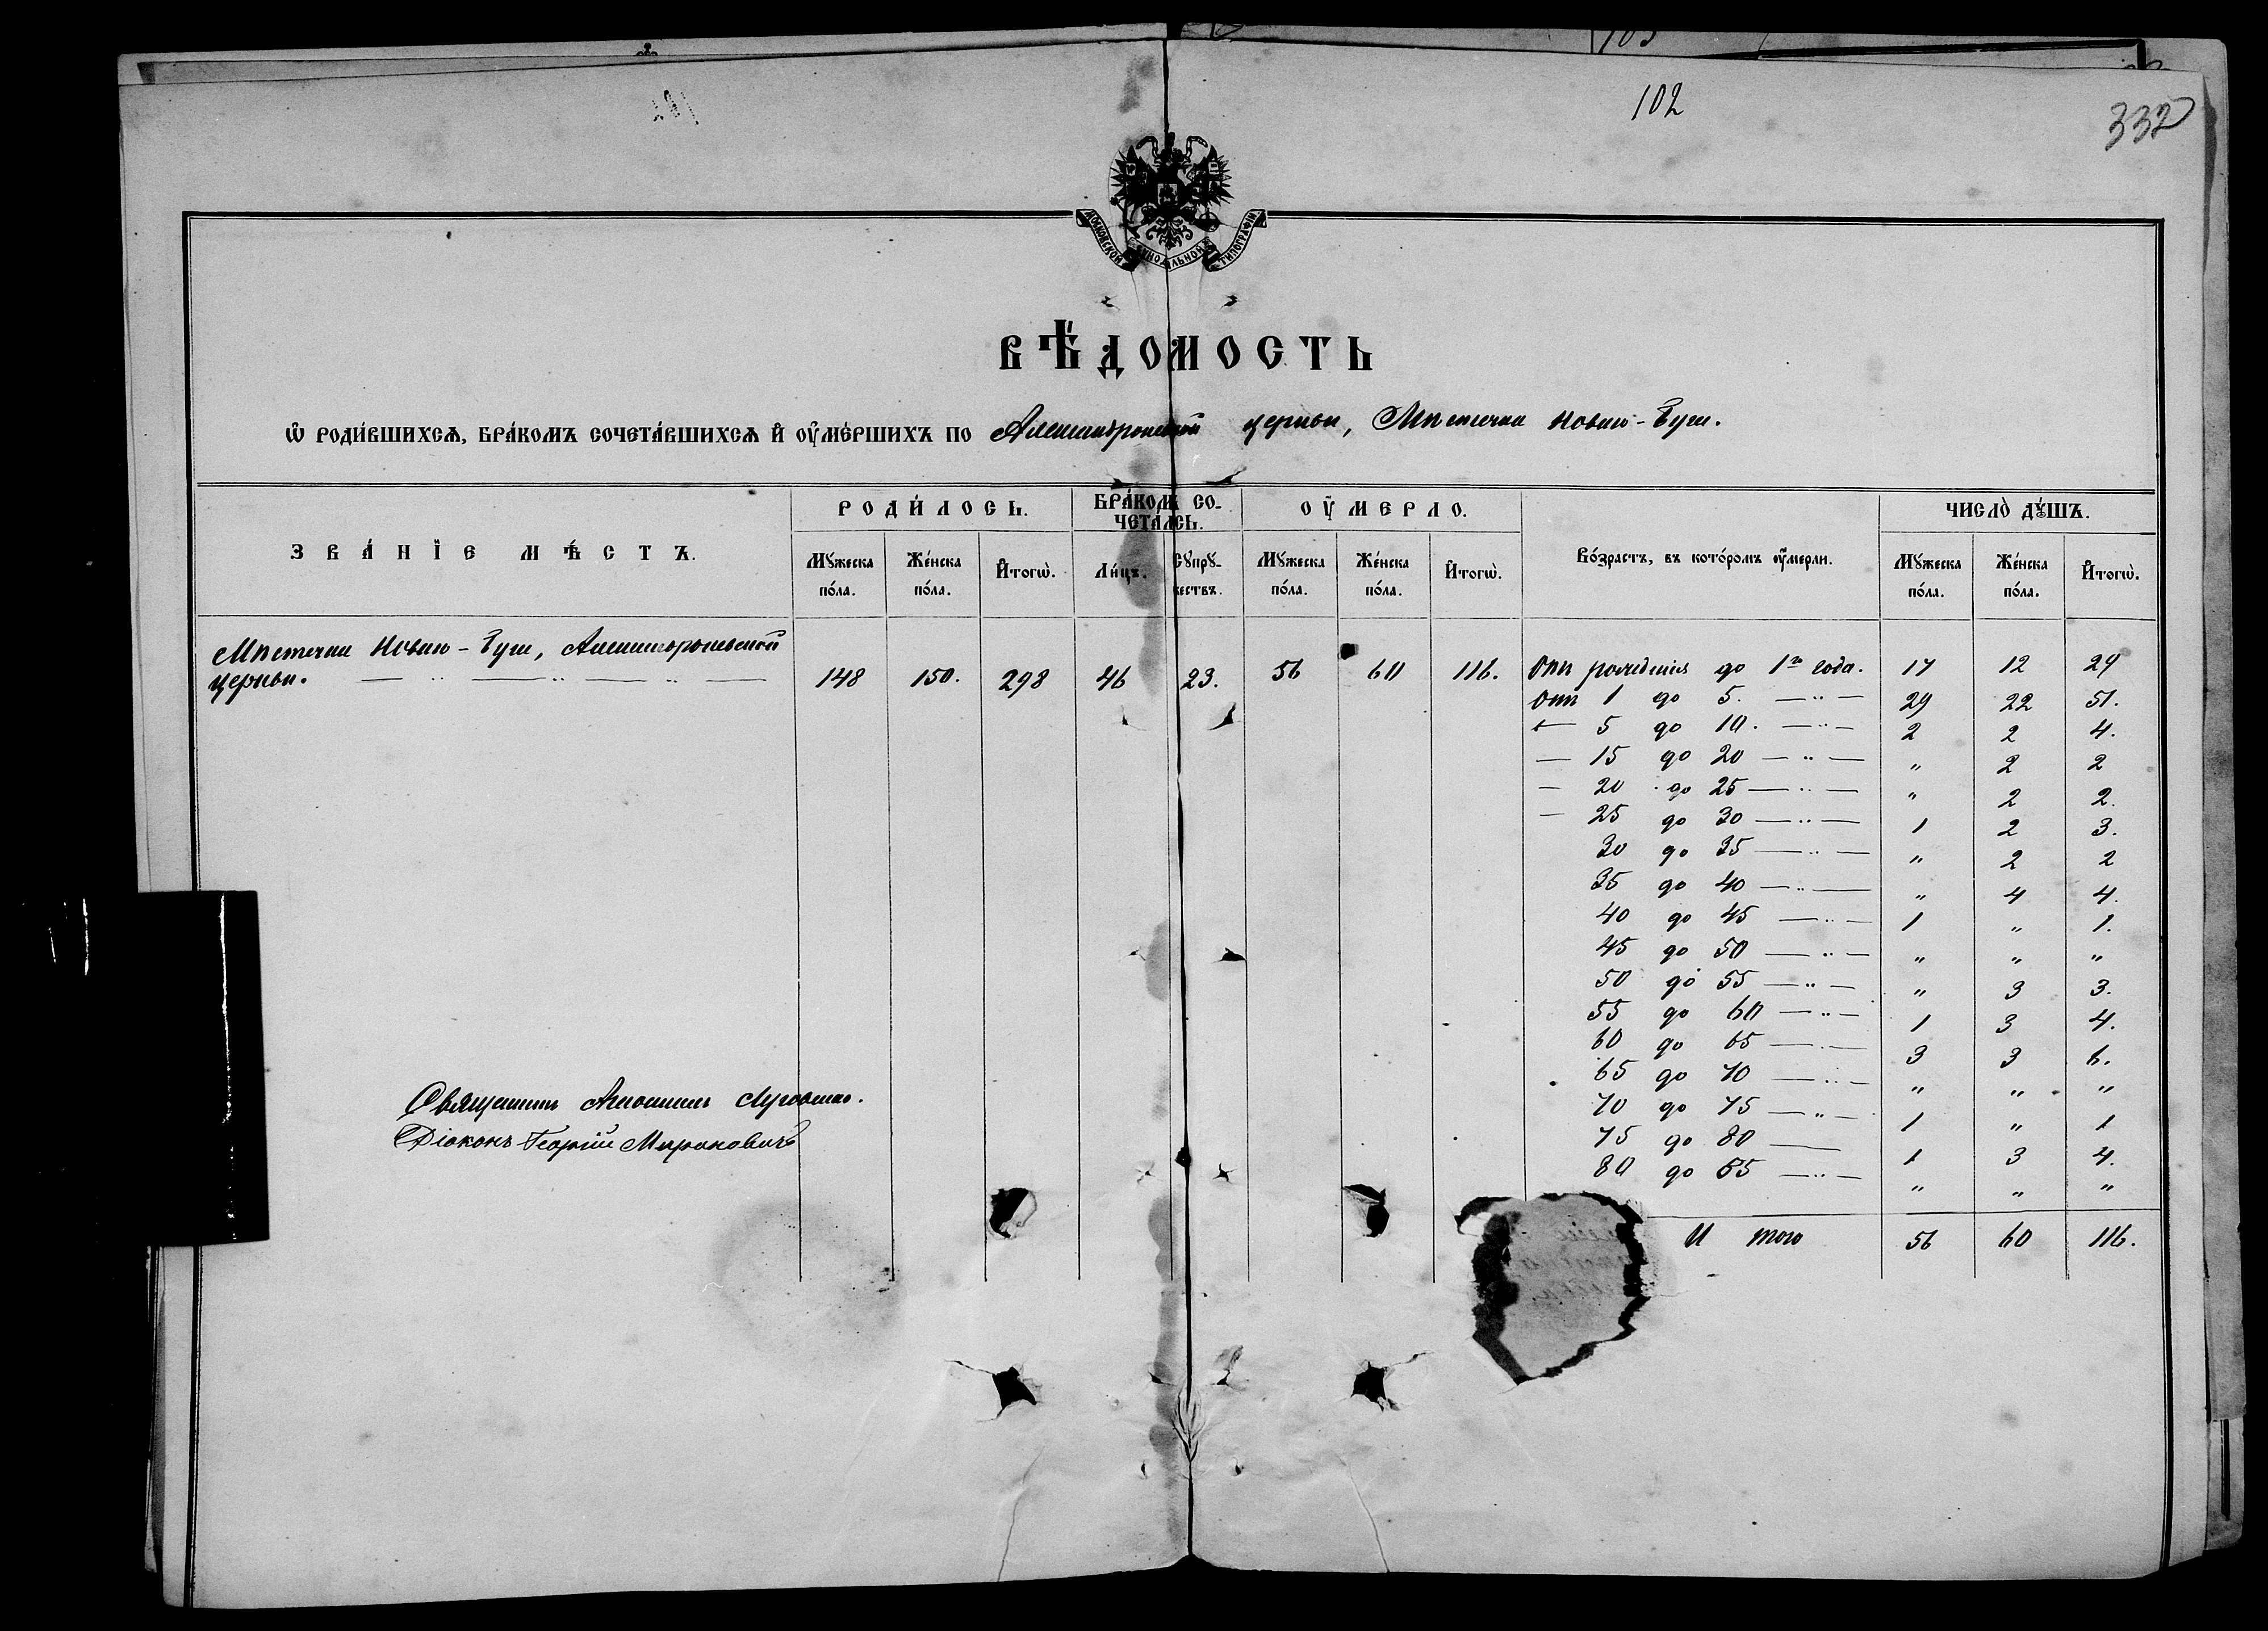 102
332
МОСКОВСКОЙ СѴНОДАЛЬНОЙ ТИПОГРАФІИ
ВѢДОМОСТЬ
Ѡ РОДИВШИХСЯ, БРАКОМЪ СОЧЕТАВШИХСЯ И ОУМЕРШИХЪ ПО Александроневской церкви, Мѣстечка Новаго-Буга.
ЗВАНІЕ МѢСТЪ. РОДИЛОСЬ. БРАКОМЪ СО-ЧЕТАЛСЬ. ОУМЕРЛО. Возрастъ, въ которомъ оумерли. ЧИСЛО ДУШЪ.
Мужеска пола. Женска пола. Итогѡ. Лицъ. Супружествъ. Мужеска пола. Женска пола. Итогѡ. Мужеска пола. Женска пола. Итогѡ.
Мѣстечка Новаго-Буга, Александроневской
церкви. — „ — „ — „ — 148 150. 298 46 23. 56 60 116. Отъ рожденія до 1го года. 17 12 29
Отъ 1 до 5. — „ — 29 22 51.
— 5 до 10. — „ — 2 2 4.
— 15 до 20 — „ — „ 2 2
— 20 до 25 — „ — „ 2 2.
— 25 до 30 — „ — 1 2 3.
30 до 35 — „ — „ 2 2
35 до 40 — „ — „ 4 4.
40 до 45 — „ — 1 „ 1.
45 до 50 — „ — „ „ „
50 до 55 — „ — „ 3 3.
55 до 60 — „ — 1 3 4.
60 до 65 — „ — 3 3 6.
65 до 70 — „ — „ „ „
70 до 75 — „ — 1 „ 1
75 до 80 — 1 3 4.
80 до 85 — „ — „ „ „
И того 56 60 116.
Священникъ
Діаконъ Георгій Мироновичъ